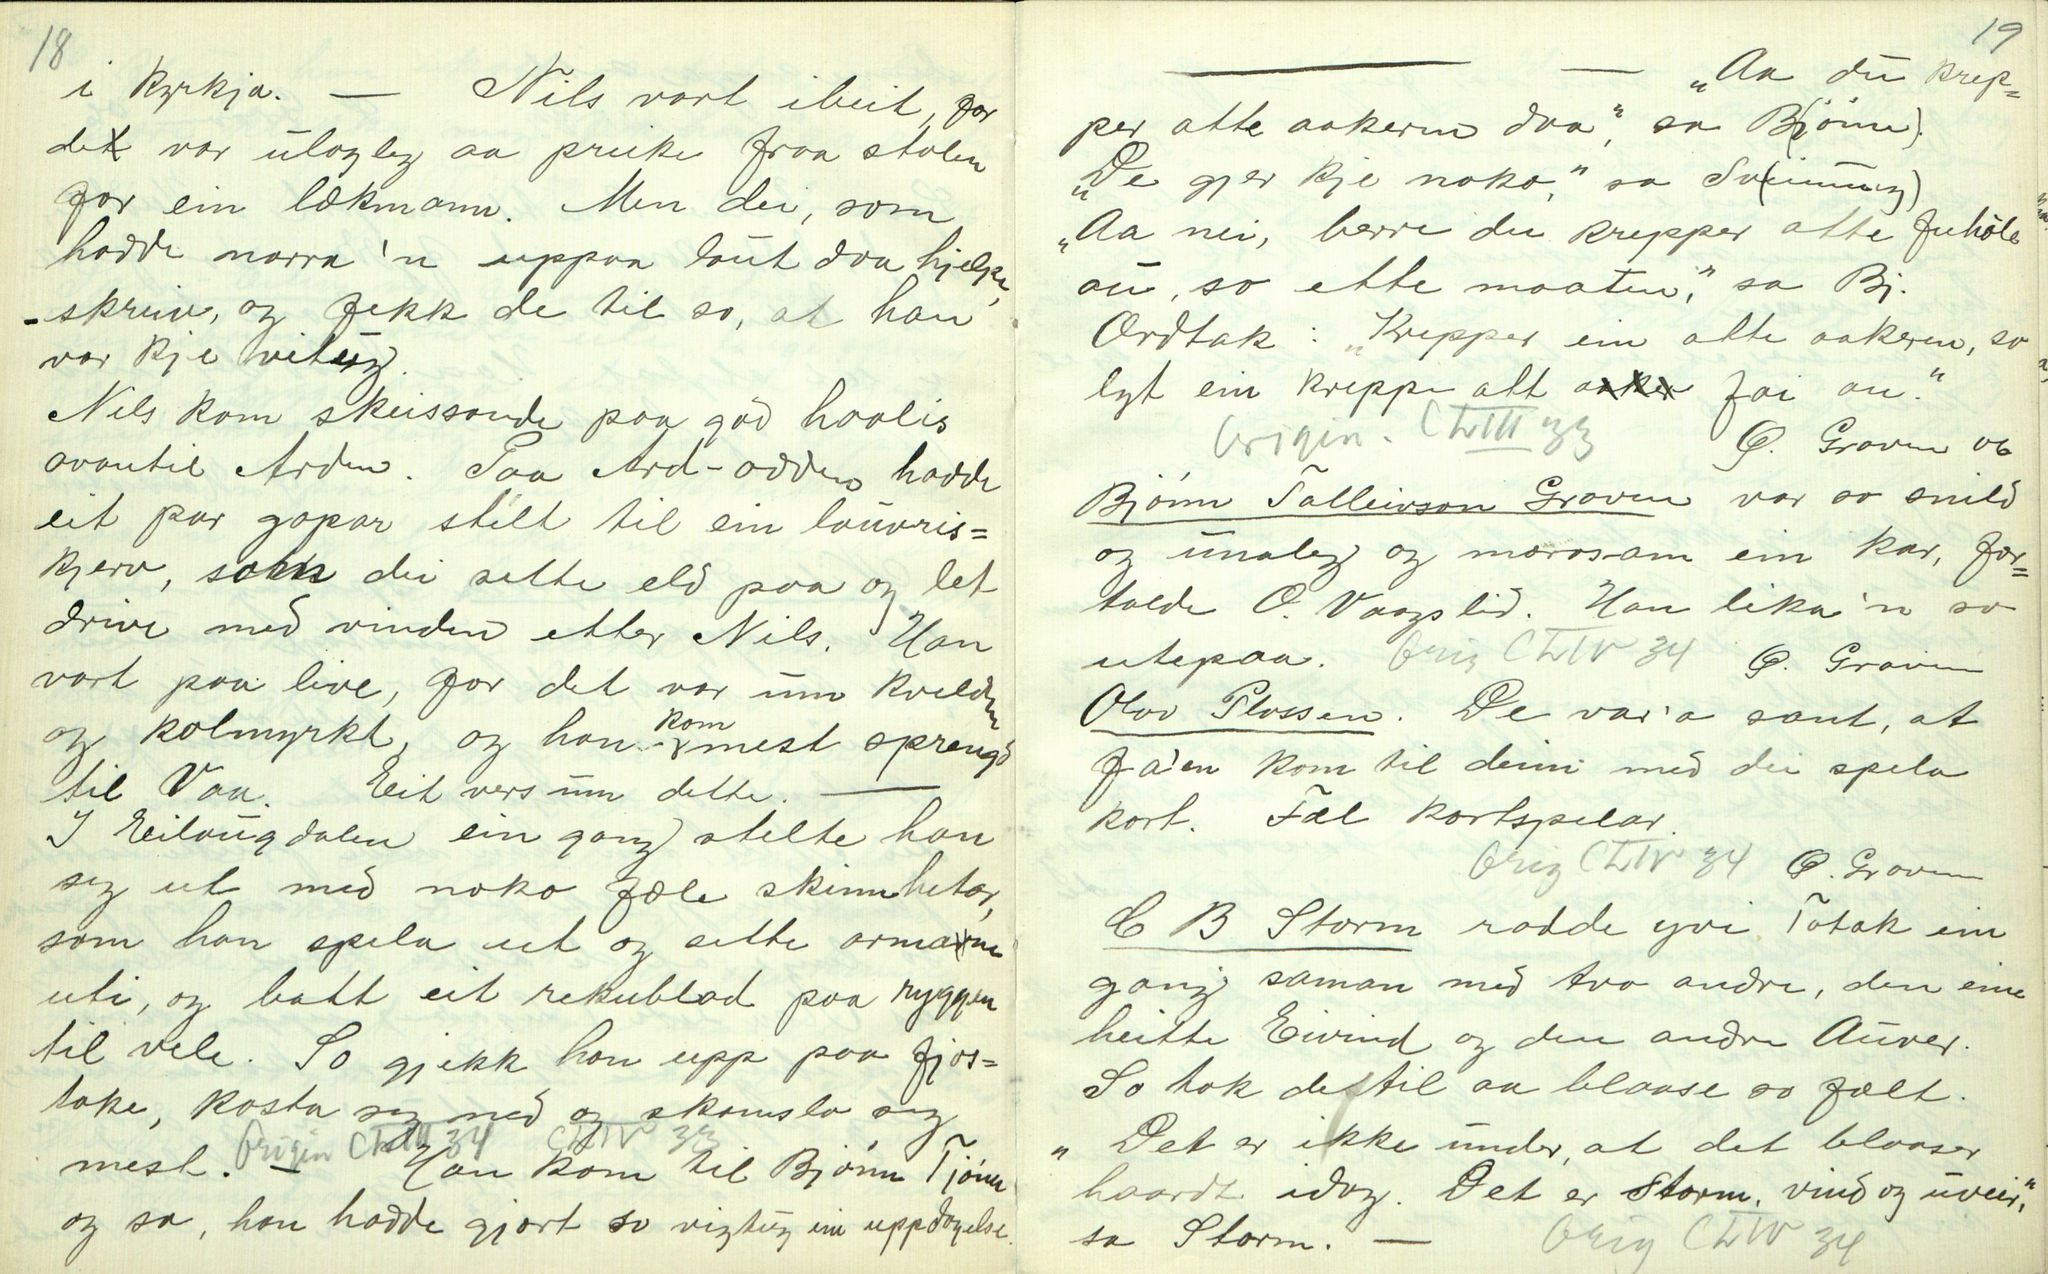 18
i kyrkja. — Nils vart ibeit, for
det var ulovleg aa preike fraa stolen
for ein lækmann. Men dei, som
hadde narra 'n uppaa laut daa hjelpe,
skreiv, og fekk de til so, at han
var kje vitug.
Nils kom skeissande paa god haalis
avantil Arden. Paa Ard-odden hadde
eit par gapar stelt til ein lauvris=
kjerv, som dei sette eld paa og let
drive med vinden etter Nils. Han
vart paa live, for det var um kvelden
og kolmyrkt, og han kom mest sprengd
til Vaa. Eit vers um dette. —
I Eilaugdalen ein gang stelte han
seg ut med noko fæle skinnhetar,
som han spela ut og sette armane
uti, og batt eit rekublad paa ryggen
til vele. So gjekk han upp paa fjos=
take, kasta seg ned og skamslo seg
mest. — Han kom til Bjönn Tjönn
Origin CLIII 34 CLIV 33
og sa, han hadde gjort so vigtug ein uppdagelse.
19
— — „Aa du krep=
per atte aakeren daa," sa Bj(önn).
„De gjer kje noko," sa Sv(einung)
„Aa nei, berre du krepper atte fuhöle
au, so ette maaten," sa Bj.
Ordtak: „Krepper ein atte aakeren, so
lyt ein kreppe att fai au."
Origin. CLIII 33 O. Graven og
Bjönn Talleivson Graven var so snild
og unaleg og morosam ein kar, for=
talde O. Vaagslid. Han lika 'n so
utepaa. Orig CLIV 34 O. Graven
Olav Plassen. De var 'a sant, at
fa'en kom til deim med dei spela
kort. Fæl kortspelar.
Orig CLIV 34 O. Graven
C B Storm rodde yvi Totak ein
gang saman med tvo andre, den eine
heitte Eivind og den andre Auver.
So tok de til aa blaase so fælt.
„Det er ikke under, at det blaaser
haardt idag. Det er Storm, vind og uveir,"
sa Storm. — Orig CLIV 34